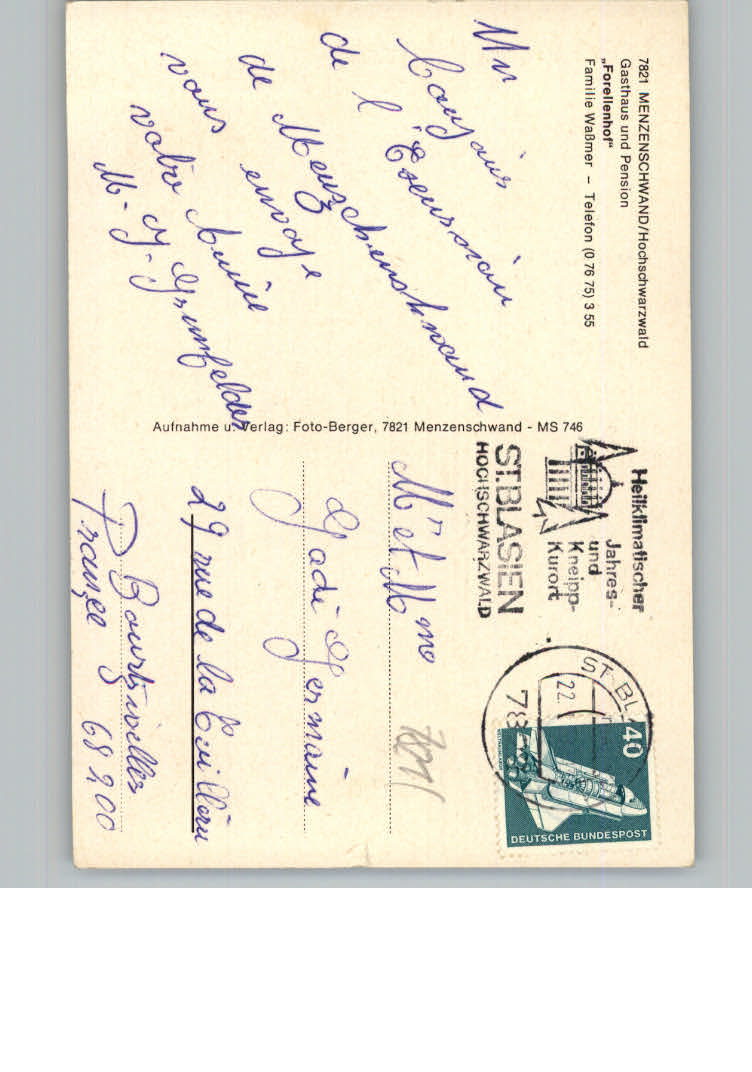 7821 MENZENSCHWAND/Hochschwarzwald
Gasthaus und Pension
„Forellenhof“
Familie Waßmer – Telefon (0 76 75) 3 55
Un
de l'
de Menzschenschwand
vous envoye
votre Amie
M-J- Grunfelder
Aufnahme u. Verlag: Foto-Berger, 7821 Menzenschwand - MS 746
Heilklimatischer
Jahres-
und
Kneipp-
Kurort
ST.BLASIEN
HOCHSCHWARZWALD
ST. BL
22.
78
40
DEUTSCHE BUNDESPOST
Mr et Mme
Gadi Germaine
29 rue de la
Bourtzwiller
France 68200